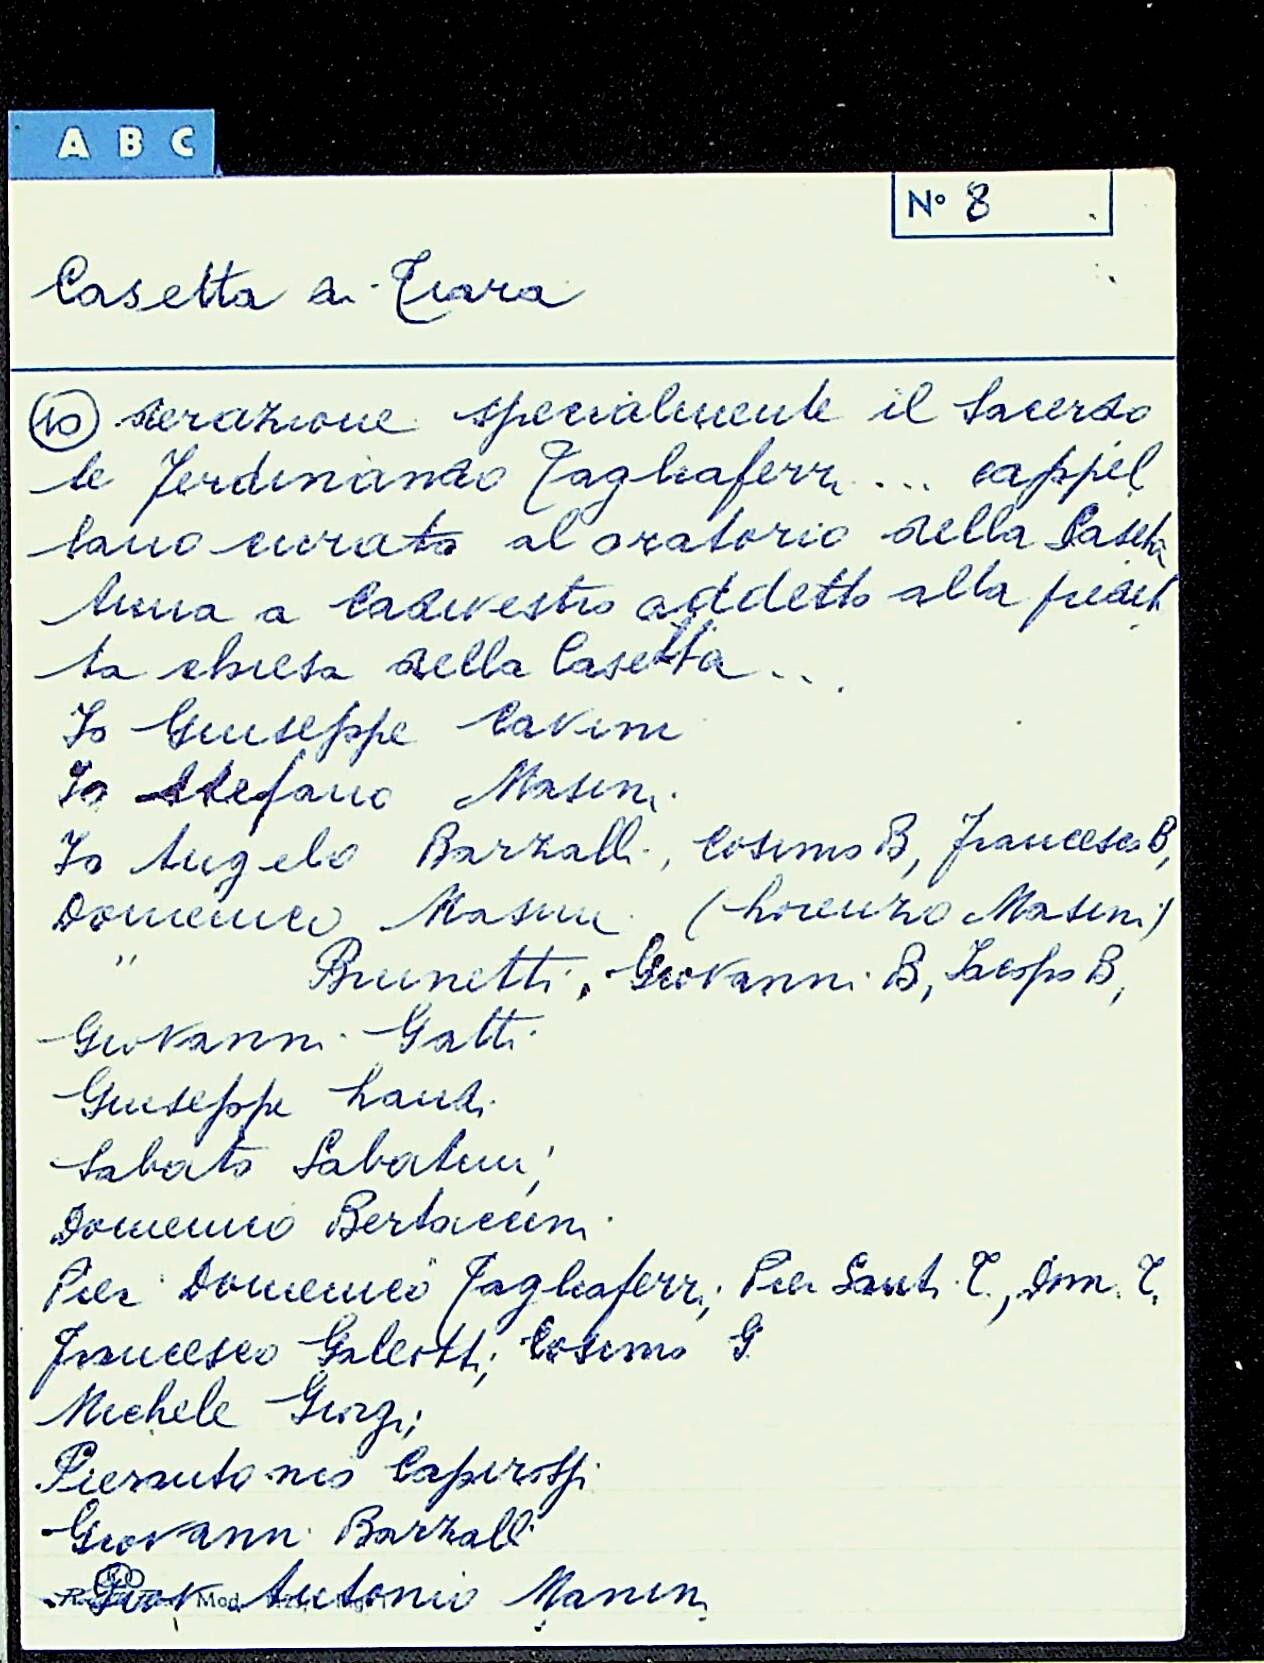 A B C
N° 8
Casetta di Tiara
10 derazione specialmente il Sacerdo
te Ferdinando Tagliaferri ... cappel
lano curato al oratorio della Casetta
Anna a Cadivestro addetto alla predet
ta chiesa della Casetta ...
Io Giuseppe Cavini
Io Stefano Masini
Io Angelo Barzalli, Cosimo B, Francesco B,
Domenico Masini (Lorenzo Masini)
" Brunetti, Giovanni B, Iacopo B,
Giovanni Gatti
Giuseppe Landi
Sabato Sabatini;
Domenico Bertaccini
Pier Domenico Tagliaferri; Pier Santi T., Dom. T.
Francesco Galeotti; Cosimo G
Michele Giorgi;
Pierantonio Capirossi
Giovanni Barzalli
Antonio Manini
Mod.